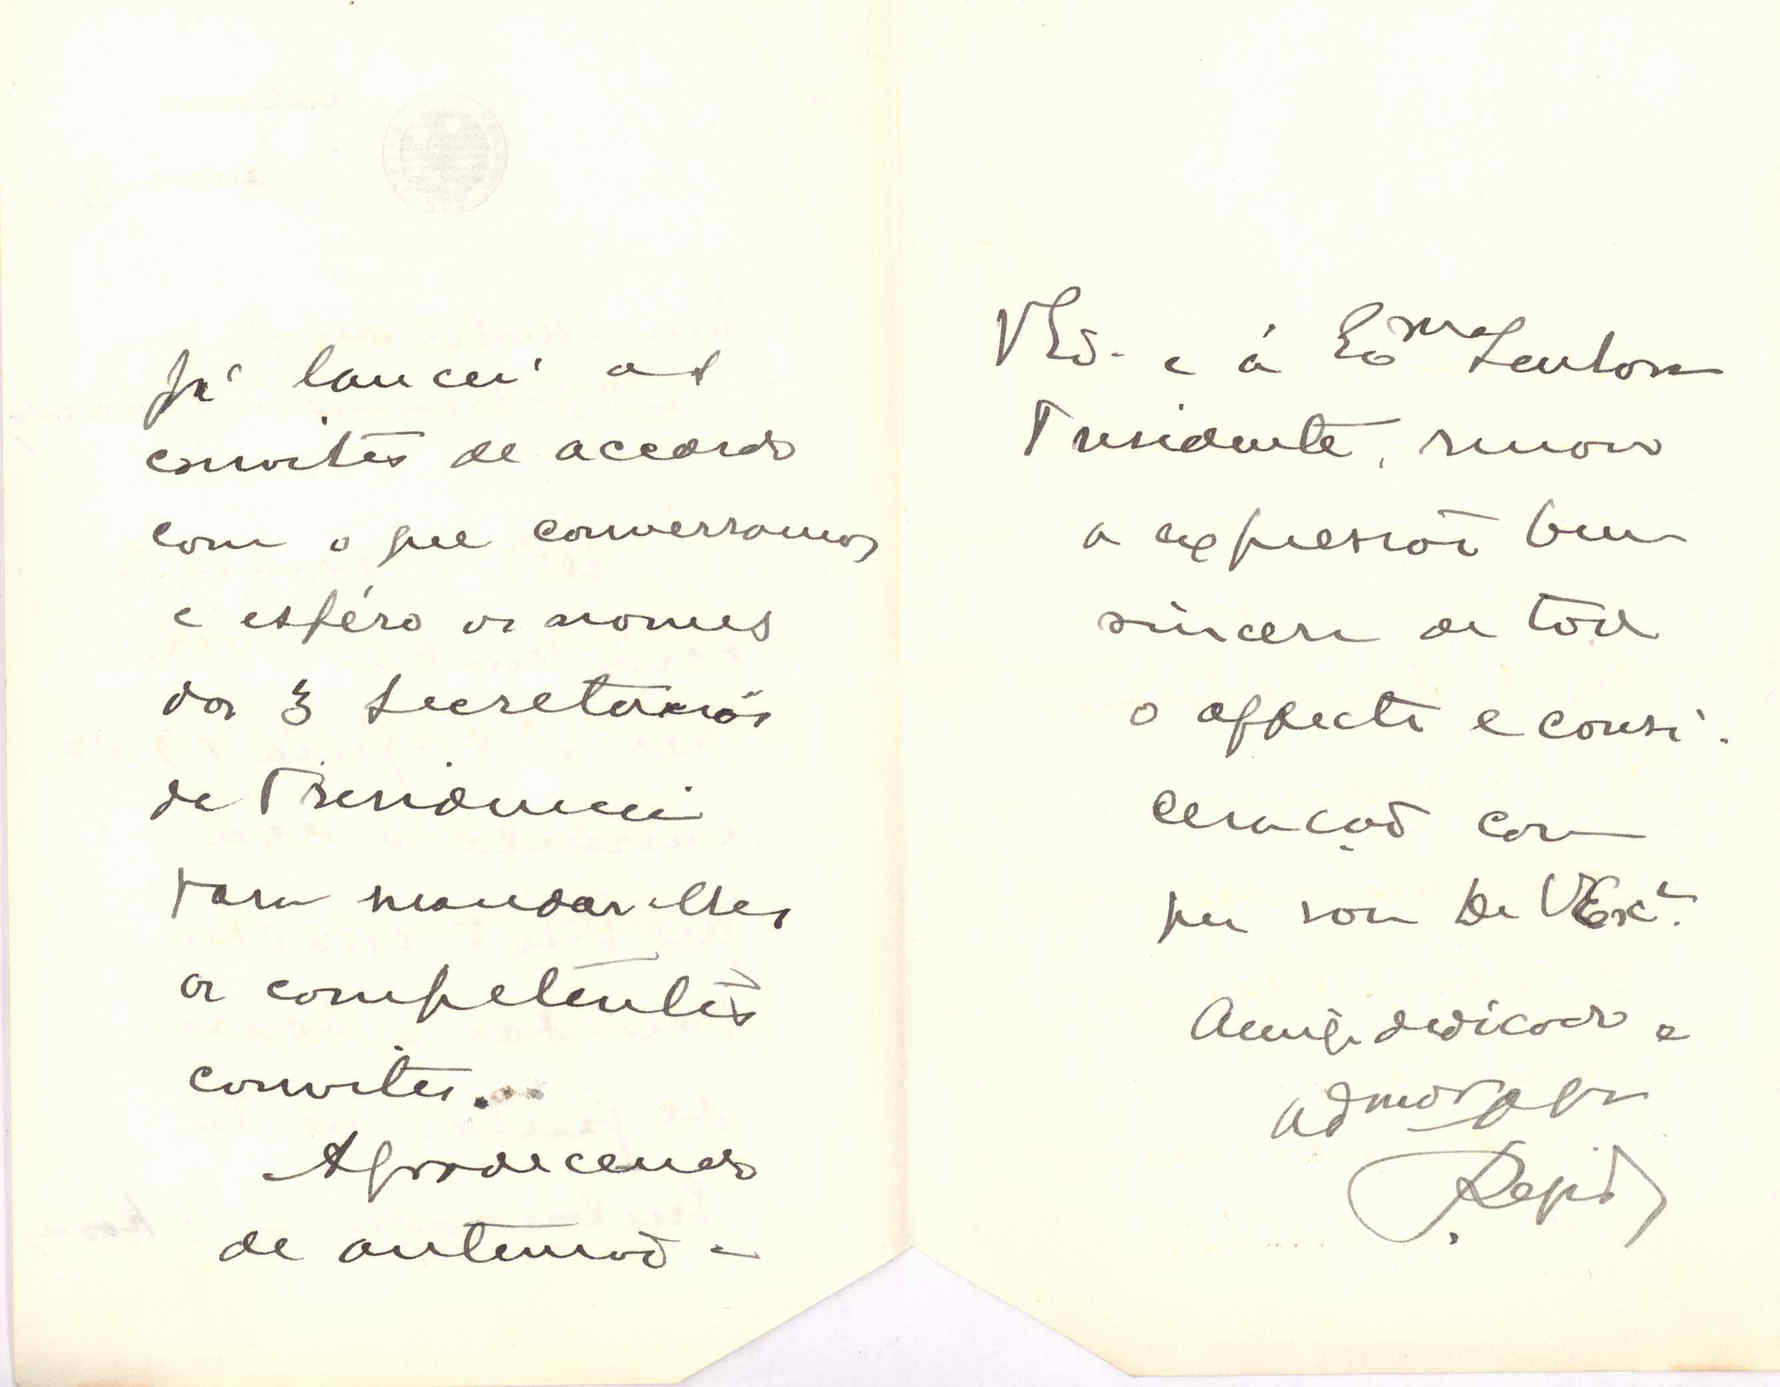 Já lancei as
convites de accordo
com o que conversamos
e espéro os nomes
dos 3 Secretarios
da Presidencia
para mandar-lhes
os competentes
convites.
Agradecendo
de antemaõ a
VEx. e á Exma Senhora
Presidente, renovo
a expressaõ bem
sincera de todo
o affecto e consi-
deraçaõ com
que sou De VExa.
Amigo dedicado e
admor